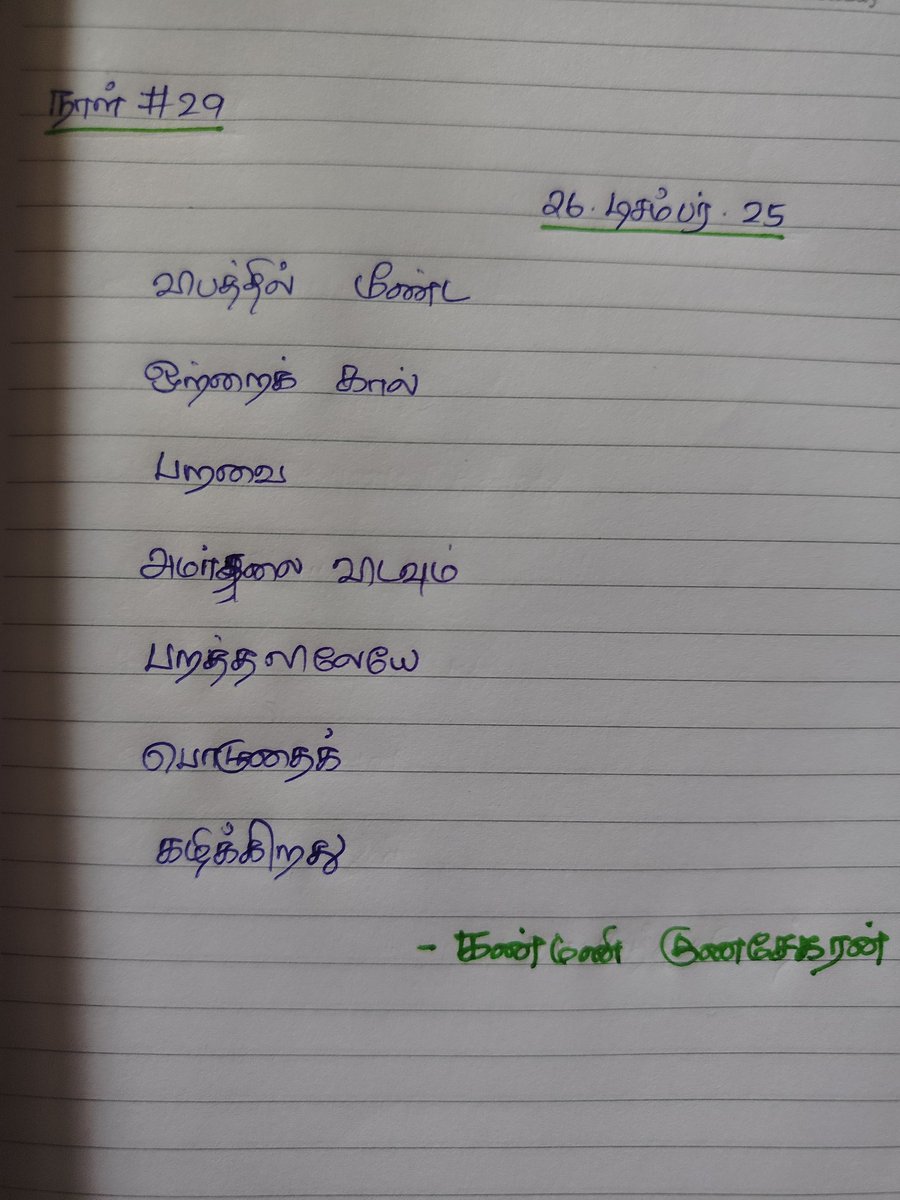 நாள் #29
26. டிசம்பர். 25
விபத்தில் மீண்ட
ஒற்றைக் கால்
பறவை
அமர்தலை விடவும்
பறத்தலிலேயே
பொழுதைக்
கழிக்கிறது
- கண்மணி குணசேகரன்